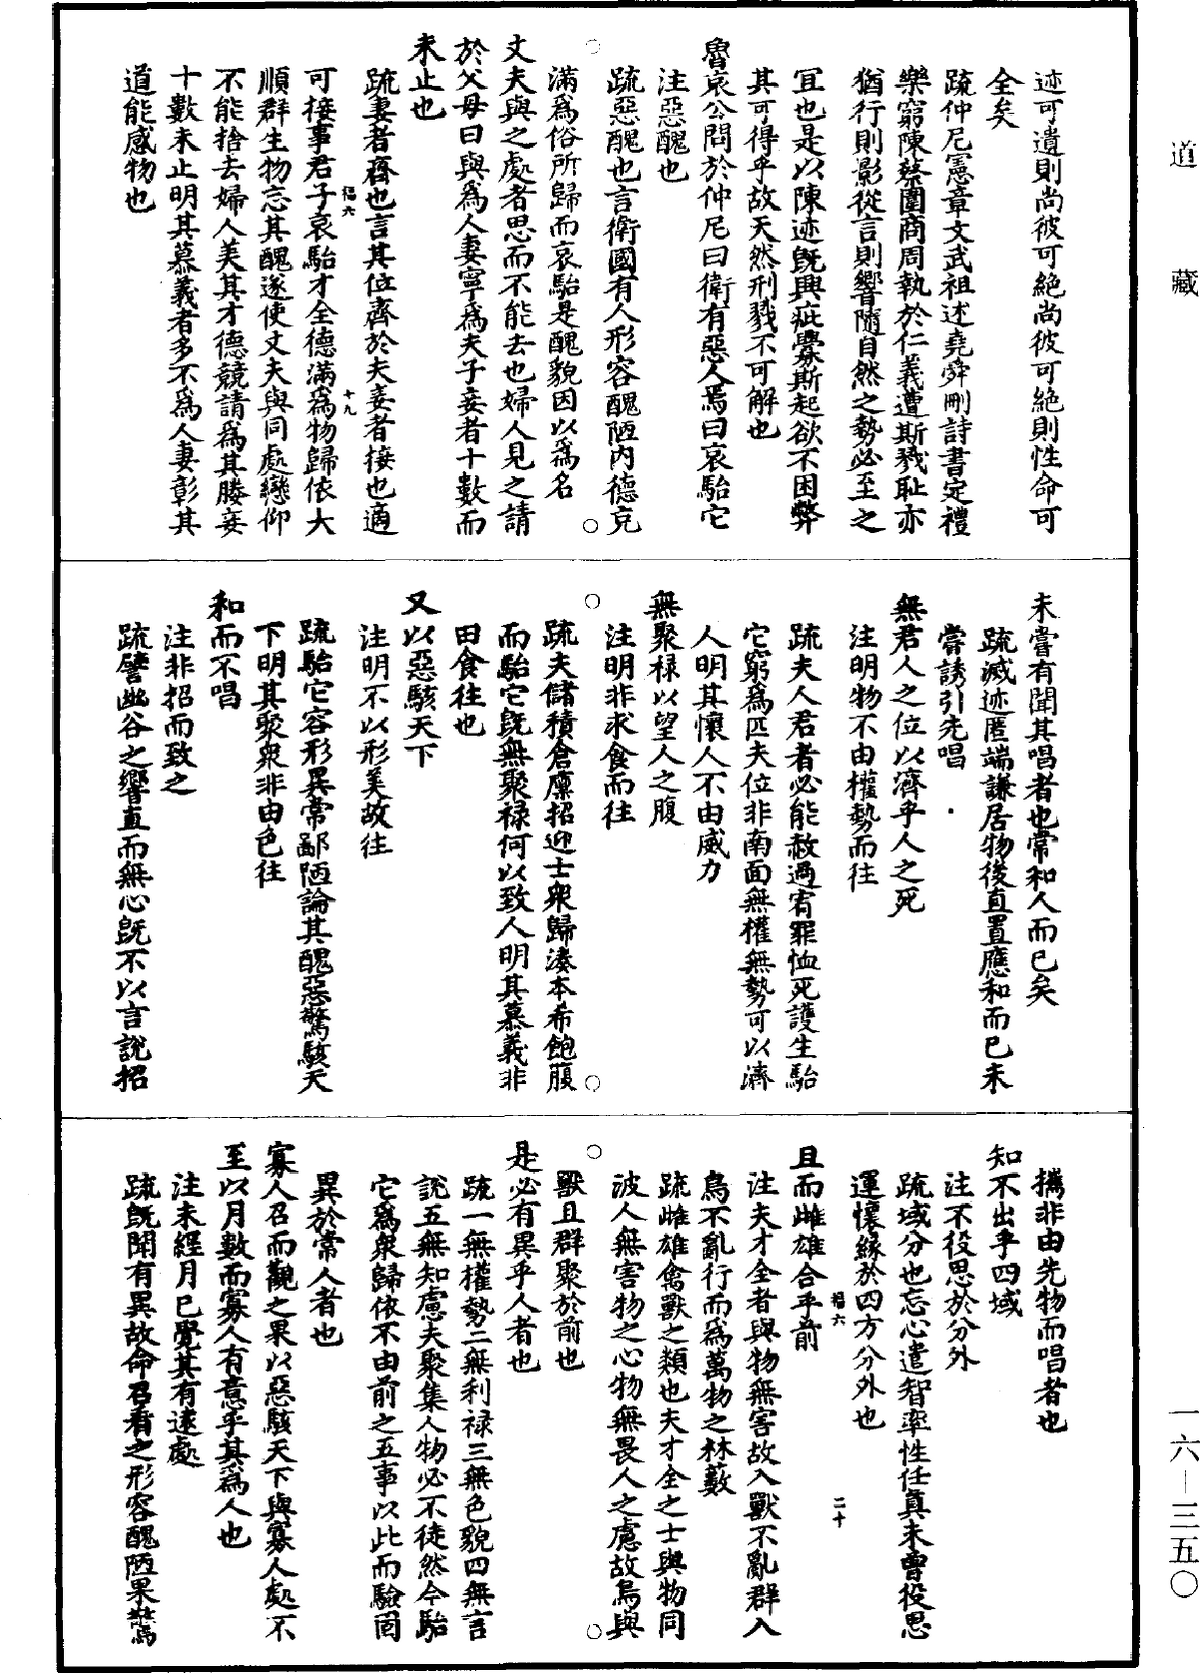 道藏
一六—三五〇
迹可遺則尚彼可絶尚彼可絶則性命可
全矣
疏仲尼憲章文武祖述堯舜刪詩書定禮
樂窮陳蔡圍商周執於仁義遭斯戮耻亦
猶行則影從言則響隨自然之勢必至之
冝也是以陳迹旣興疵釁斯起欲不困弊
其可得乎故天然刑戮不可解也
魯哀公問於仲尼曰衛有惡人焉曰哀駘它
注惡醜也
疏惡醜也言衛國有人形容醜陋内德充
滿爲俗所歸而哀駘是醜貌因以爲名
丈夫與之處者思而不能去也婦人見之請
於父母曰與爲人妻寧爲夫子妾者十數而
未止也
疏妻者齊也言其位齊於夫妾者接也適
可接事君子哀駘才全德滿爲物歸依大
福六
十九
順群生物忘其醜遂使丈夫與同處戀仰
不能捨去婦人美其才德競請爲其媵妾
十數未止明其慕義者多不爲人妻彰其
道能感物也
未嘗有聞其唱者也常和人而已矣
疏滅迹匿端謙居物後直置應和而已未
嘗誘引先唱
無君人之位以濟乎人之死
注明物不由權勢而往
疏夫人君者必能赦過宥罪恤死護生駘
它窮爲匹夫位非南面無權無勢可以濟
人明其懷人不由威力
無聚祿以望人之腹
注明非求食而往
疏夫儲積倉廩招迎士衆歸湊本希飽腹
而駘它旣無聚祿何以致人明其慕義非
田食往也
又以惡駭天下
注明不以形美故往
疏駘它容形異常鄙陋論其醜惡驚駭天
下明其聚衆非由色往
和而不唱
注非招而致之
疏譬幽谷之響直而無心旣不以言説招
攜非由先物而唱者也
知不出乎四域
注不役思於分外
疏域分也忘心遣智率性任真未曾役思
運懷緣於四方分外也
福六
二十
且而雌雄合乎前
注夫才全者與物無害故入獸不亂群入
鳥不亂行而爲萬物之林藪
疏雌雄禽獸之類也夫才全之士與物同
波人無害物之心物無畏人之慮故鳥與
獸且群聚於前也
是必有異乎人者也
疏一無權勢二無利祿三無色貌四無言
説五無知慮夫聚集人物必不徒然今駘
它爲衆歸依不由前之五事以此而驗固
異於常人者也
寡人召而觀之果以惡駭天下與寡人處不
至以月數而寡人有意乎其爲人也
注未經月已覺其有遠處
疏旣聞有異故命召看之形容醜陋果驚